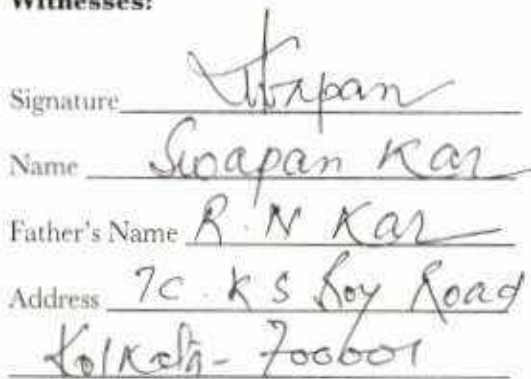 Witnesses:
Signature
Name Swapan Kar
Father's Name R. N Kar
Address 7C. K S Roy Road
Kolkata - 700001